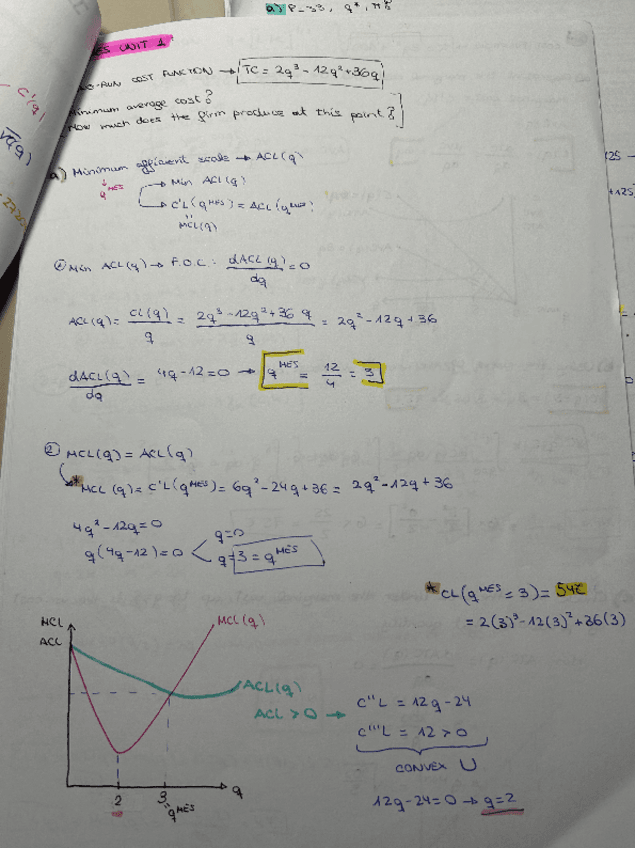 a) P=33, q*, π*
ES UNIT 1
-RUN COST FUNCTION → TC = 2q³ - 12q² + 36q
Minimum average cost?
How much does the firm produce at this point?
a) Minimum efficient scale → ACL(q)
q^MES
→ Min ACL(q)
→ C'L(q^MES) = ACL(q^MES)
MCL(q)
C'(q)
125 -
+125
① Min ACL(q) → F.O.C.: dACL(q)/dq = 0
ACL(q) = CL(q)/q = 2q³ - 12q² + 36 q/q = 2q² - 12q + 36
dACL(q)/dq = 4q - 12 = 0 → q^MES = 12/4 = 3
② MCL(q) = ACL(q)
* MCL (q) = C'L(q^MES) = 6q² - 24q + 36 = 2q² - 12q + 36
4q² - 12q = 0
q(4q - 12) = 0 < q=0
q=3 = q^MES
* CL(q^MES = 3) = 54€
= 2(3)³ - 12(3)² + 36(3)
MCL
ACL
MCL(q)
ACL(q)
ACL > 0 →
C''L = 12q - 24
C'''L = 12 > 0
CONVEX U
12q - 24 = 0 → q = 2
2
3
q
" q^MES